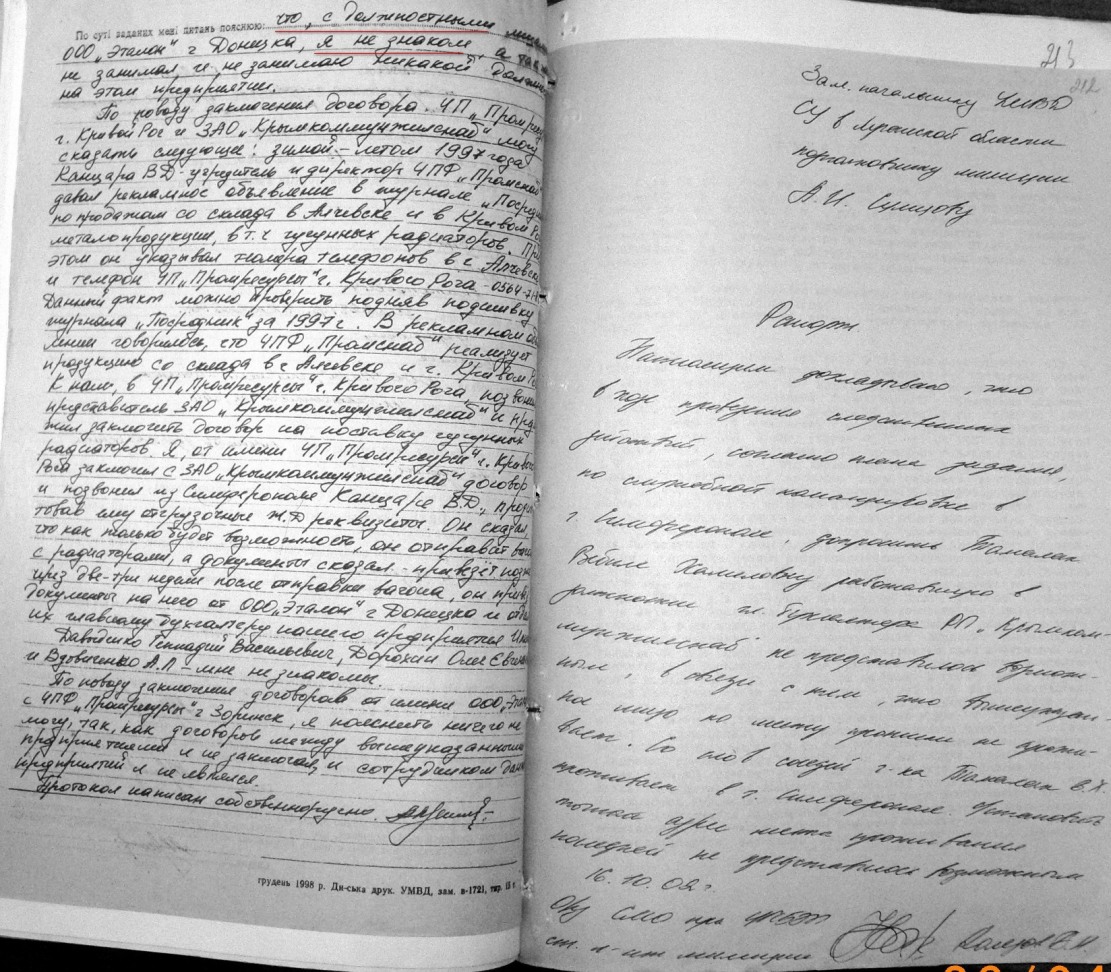 По суті заданих мені питань пояснюю: что, с должностными лицами
ООО „Эталон" г Донецка, я не знаком, а так
не занимал, и не занимаю никакой должно
на этом предприятии.
По поводу заключения договора. ЧП „Промре
г. Кривой Рог и ЗАО „Крымкоммунжилснаб" могу
сказать следующее: зимой – летом 1997 года
Канцара ВД - учредитель и директор ЧПФ „Промснаб"
давал рекламное объявление в журнале „Посред
по продажам со склада в Алчевске и в Кривом Ро
металопродукции, в т.ч чугунных радиаторов. При
этом он указывал номера телефонов в г Алчевске
и телефон ЧП „Промресурсы" г. Кривого Рога - 0564-71
Данный факт можно проверить подняв подшивку
журнала „Посредник" за 1997 г. В рекламном объ
лении говорилось, что ЧПФ „Промснаб" реализует
продукцию со склада в г Алчевске и г. Кривом Ро
К нам, в ЧП „Промресурсы" г. Кривого Рога, позвон
представитель ЗАО „Крымкоммунжилснаб" и пред
жил заключить договор на поставку чугунных
радиаторов. Я, от имени ЧП „Промресурсы" г. Кривого
Рога заключил с ЗАО „Крымкоммунжилснаб" договор
и позвонил из Симферополя Канцаре В.Д., продик
товав ему отгрузочные Ж.Д реквизиты. Он сказал,
что как только будет возможность, он отправит ваго
с радиаторами, а документы сказал - привезёт позж
через две-три недели после отправки вагона, он приве
документы на него от ООО „Эталон" г Донецка и отдал
их главному бухгалтеру нашего предприятия
Давиденко Геннадий Васильевич, Дорохин Олег Евгень
и Вдовиченко А.П - мне не знакомы.
По поводу заключения договоров от имени ООО „Этал
с ЧПФ „Промресурсы" г Зоринск, я пояснить ничего не
могу, так, как договоров между вышеуказанными
предприятиями я не заключал, и сотрудником данн
предприятий я не являлся.
Протокол написан собственноручно.
грудень 1998 р. Ди-ська друк. УМВД, зам. в-1721, тир.
213
212
Зам. начальнику
СУ в Луганской области
подполковнику милиции
А.И.
Рапорт
Настоящим докладываю, что
в ходе проведения следственных
действий, согласно плана задания,
по служебной командировке в
г. Симферополь, допросить
работавшую в
должности гл. бухгалтера РП „Крымком-
мунжилснаб" не представилось возмож-
ным, в связи с тем, что вышеуказан-
ное лицо по месту прописки не прожи-
вает. Со слов соседей г-ка
проживает в г. Симферополе. Установить
точный адрес места проживания
последней не представилось возможным
16.10.02 г.
ст. л-нт милиции